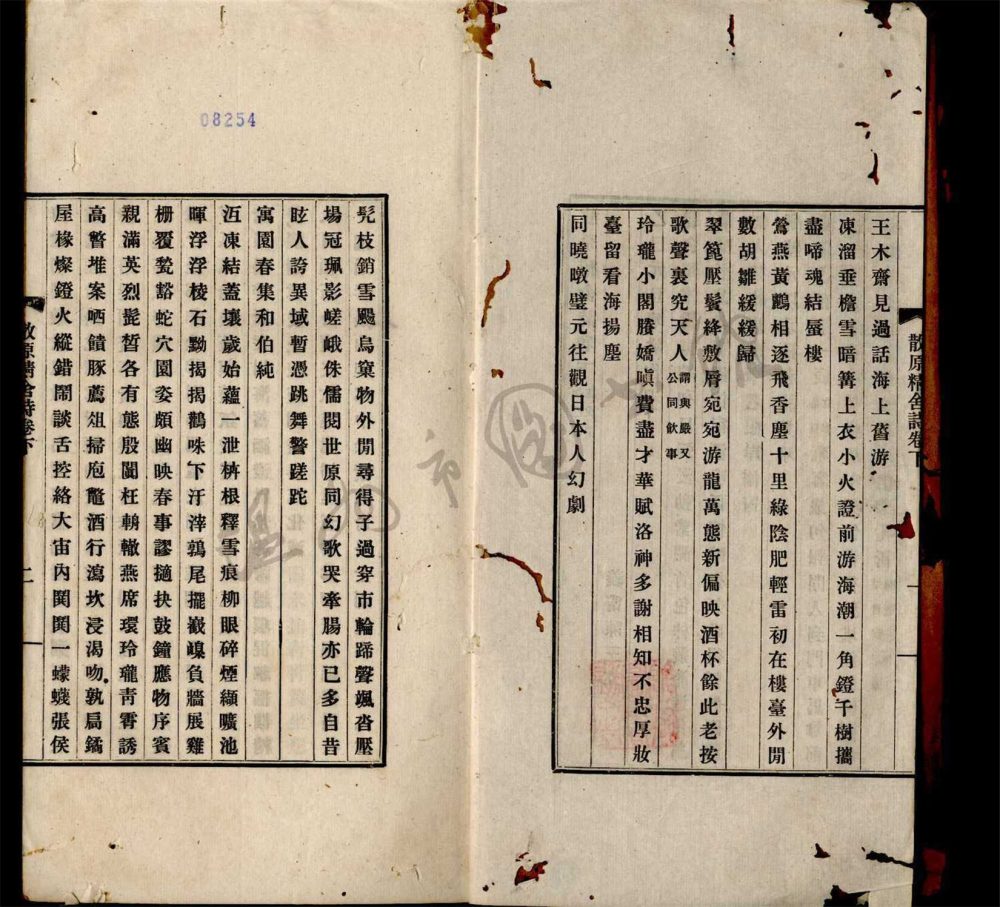 散原精舍詩卷下
王木齋見過話海上舊游
凍溜垂檐雪暗篝上衣小火證前游海潮一角鐙千樹攜
盡啼魂結蜃樓
鶯燕黃鸝相逐飛香塵十里綠陰肥輕雷初在樓臺外閒
數胡雛緩緩歸
翠篦壓鬢絳敷脣宛宛游龍萬態新偏映酒杯餘此老按
歌聲裏究天人謂與嚴又
公同飲事
玲瓏小閣賸嬌嗔費盡才華賦洛神多謝相知不忠厚妝
臺留看海揚塵
同曉暾璧元往觀日本人幻劇
08254
髡枝銷雪颺烏棄物外閒尋得子過穿市輪蹄聲颯沓壓
場冠珮影嵯峨侏儒閱世原同幻歌哭牽腸亦已多自昔
眩人誇異域暫憑跳舞警蹉跎
寓園春集和伯純
沍凍結蓋壤歲始蘊一泄枿根釋雪痕柳眼碎煙纈曠池
暉浮浮棱石黝揭揭鸛咮下汙滓鶉尾擺巀嵲負牆展雞
柵覆甃豁蛇穴園姿頗幽映春事謬擿抉鼓鐘應物序賓
親滿英烈髭皙各有態殷闐枉輈轍燕席環玲瓏靑霄誘
高瞥堆案哂饋豚薦俎掃庖鼈酒行瀉坎浸渴吻孰扃鐍
屋椽燦鐙火縱錯鬧談舌控絡大宙內閔閔一蠓蠛張侯
散原精舍詩卷下
二